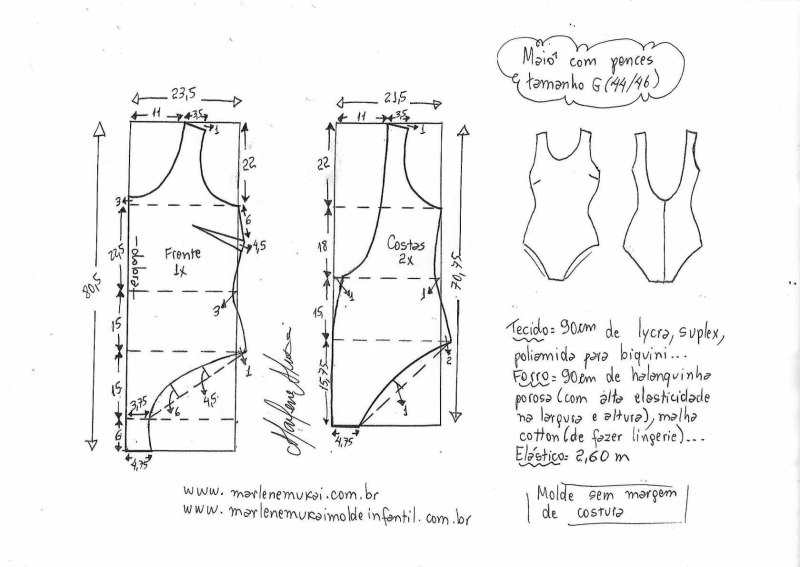 Maiô com pences
tamanho G (44/46)
23,5
11
3,5
1
22
3
6
4,5
22,5
Frente
1x
dobra
80,5
3
15
1
15
3,75
6
4,5
6
4,75
21,5
11
3,5
1
22
18
Costas
2x
70,75
1
1
15
2
15,75
1
4,75
Marlene Mukai
Tecido= 90cm de lycra, suplex,
poliamida para biquini...
Forro= 90cm de helanquinha
porosa (com alta elasticidade
na largura e altura), malha
cotton (de fazer lingerie)...
Elástico= 2,60 m
Molde sem margem
de costura
www.marlenemukai.com.br
www.marlenemukaimoldeinfantil.com.br